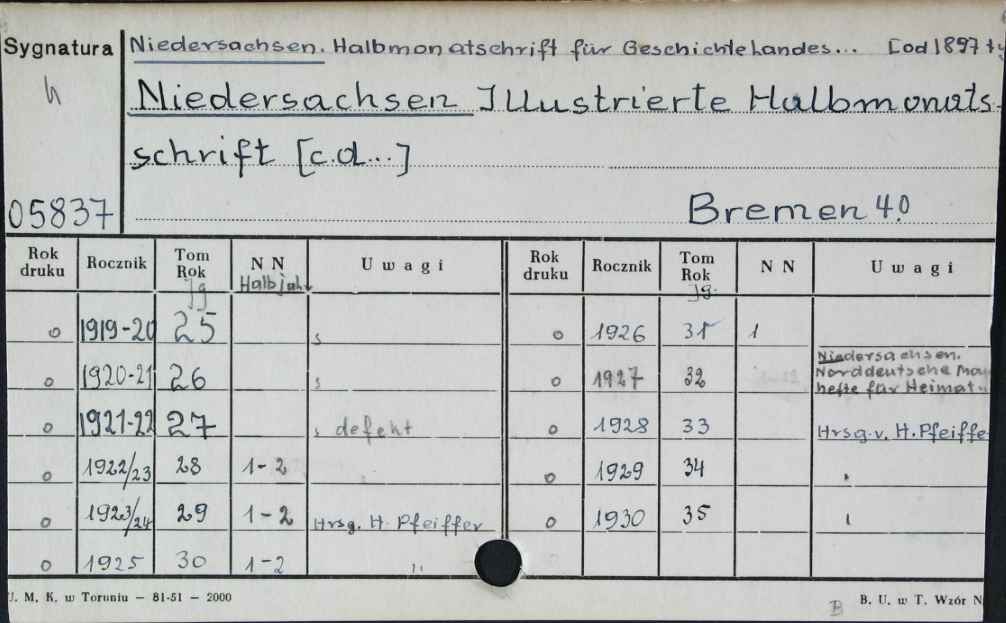 Sygnatura
Niedersachsen. Halbmonatschrift für Geschichte Landes... [od 1897 ty
h
Niedersachsen Illustrierte Halbmonats
schrift [c.d...]
05837
Bremen 4.0
Rok druku Rocznik Tom Rok Jg N N Halbjahr Uwagi Rok druku Rocznik Tom Rok Jg. N N Uwagi
o 1919-20 25 s o 1926 31 1
o 1920-21 26 s o 1927 32 Niedersachsen.
Norddeutsche Mo
hefte für Heimat
o 1921-22 27 s defekt o 1928 33 Hrsg. v. H. Pfeiffe
o 1922/23 28 1-2 o 1929 34 "
o 1923/24 29 1-2 Hrsg. H. Pfeiffer o 1930 35
o 1925 30 1-2 "
U. M. K. w Toruniu — 81-51 — 2000
B
B. U. w T. Wzór N